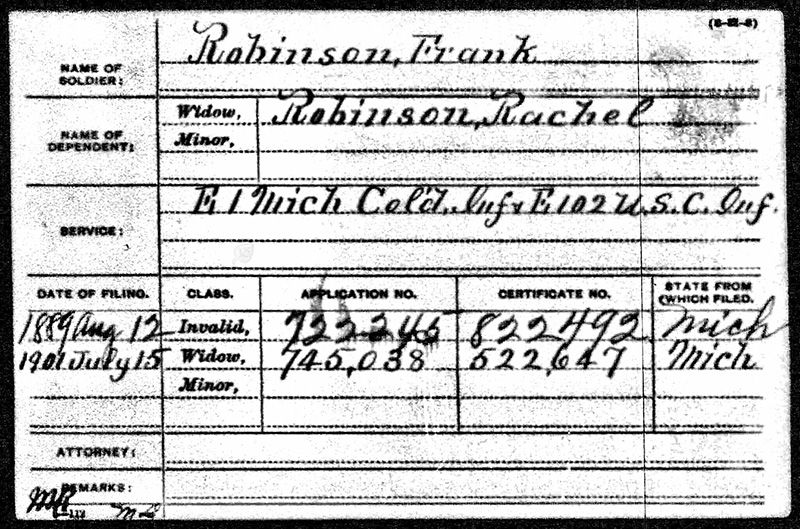 (3-111-3)
NAME OF SOLDIER: Robinson, Frank
NAME OF DEPENDENT: Widow, Robinson, Rachel
Minor,
SERVICE: E 1 Mich Col'd. Inf & E 102 U.S.C. Inf.
DATE OF FILING. CLASS. APPLICATION NO. CERTIFICATE NO. STATE FROM WHICH FILED.
1889 Aug 12 Invalid, 722245 822492 Mich
1901 July 15 Widow, 745,038 522,647 Mich
Minor,
ATTORNEY:
REMARKS: